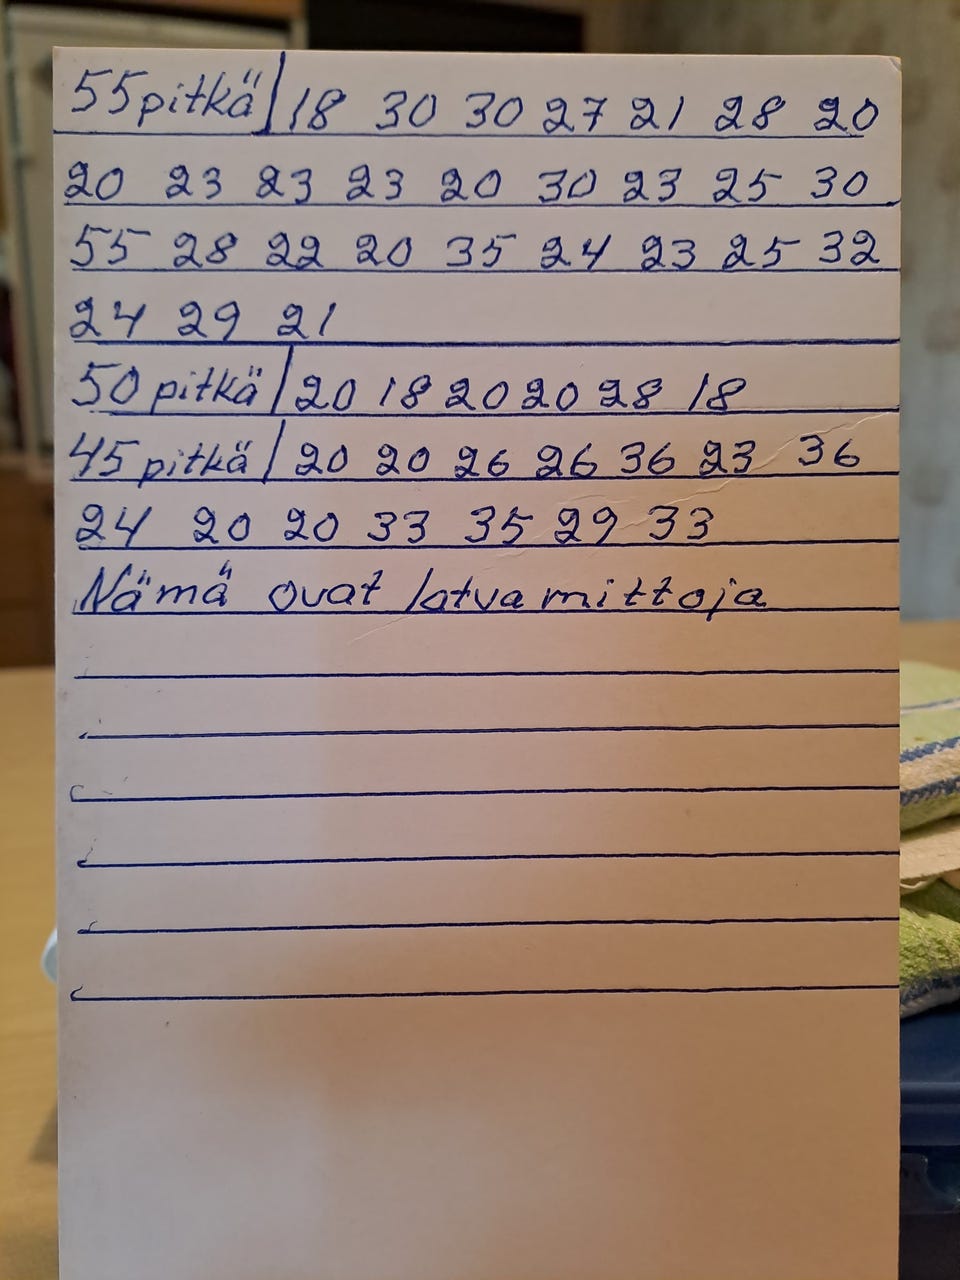 55 pitkä | 18 30 30 27 21 28 20
20 23 23 23 20 30 23 25 30
55 28 22 20 35 24 23 25 32
24 29 21
50 pitkä | 20 18 20 20 28 18
45 pitkä | 20 20 26 26 36 23 36
24 20 20 33 35 29 33
Nämä ovat latvamittoja